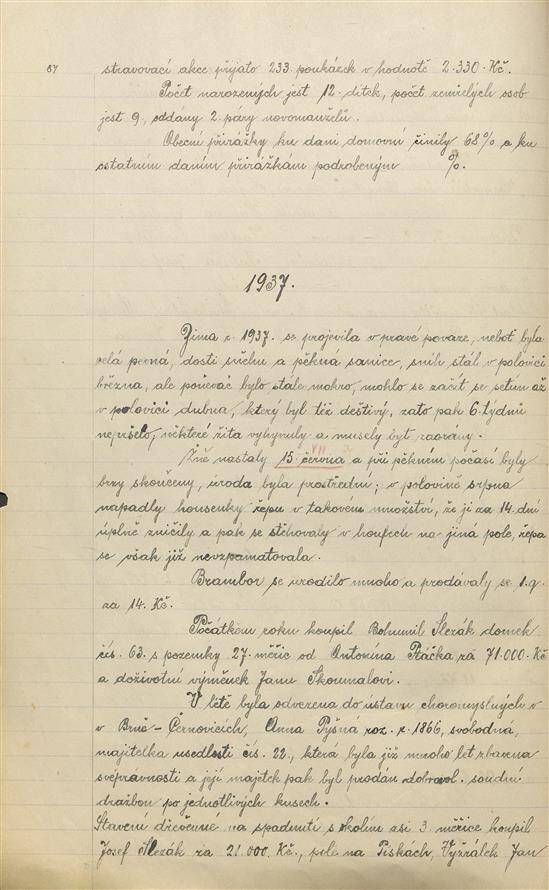 87
stravovací akce přijato 233 poukázek v hodnotě 2.330 Kč.
Počet narozených jest 12 dítek, počet zemřelých osob
jest 9, oddány 2 páry novomanželů.
Obecní přirážky ku dani domovní činily 68% a ku
ostatním daním přirážkám podrobeným %.
1937.
Zima r. 1937. se projevila v pravé povaze, neboť byla
celá perná, dosti sněhu a pěkná sanice, sníh stál v polovici
března, ale poněvač bylo stále mokro, mohlo se začít se setím až
v polovici dubna, který byl též deštivý, zato pak 6 týdnů
nepršelo, některé žita vyhynuly a musely byt zaorány.
VII
Žně nastaly 15. června a při pěkném počasí byly
brzy skončeny, úroda byla prostřední; v polovině srpna
napadly housenky řepu v takovém množství, že ji za 14. dní
úplně zničily a pak se stěhovaly v houfech na jiná pole, řepa
se však již nevzpamatovala.
Brambor se urodilo mnoho a prodávaly se 1.q.
za 14. Kč.
Počátkem roku koupil Bohumil Slezák domek
čís. 63. s pozemky 27. měřic od Antonína Ptáčka za 71.000. Kč
a doživotní výměnek Janu Skoumalovi.
V létě byla odvezena do ústavu choromyslných v
v Brně - Černovicích, Anna Pyšná roz. r. 1866, svobodná,
majitelka usedlosti čís. 22., která byla již mnoho let zbavena
svéprávnosti a její majetek pak byl prodán dobrovol. soudní
dražbou po jednotlivých kusech.
Stavení dřevěnné na spadnutí s okolím asi 3. měřice koupil
Josef Slezák za 21.000. Kč., pole na Pískách, Vyžrálek Jan